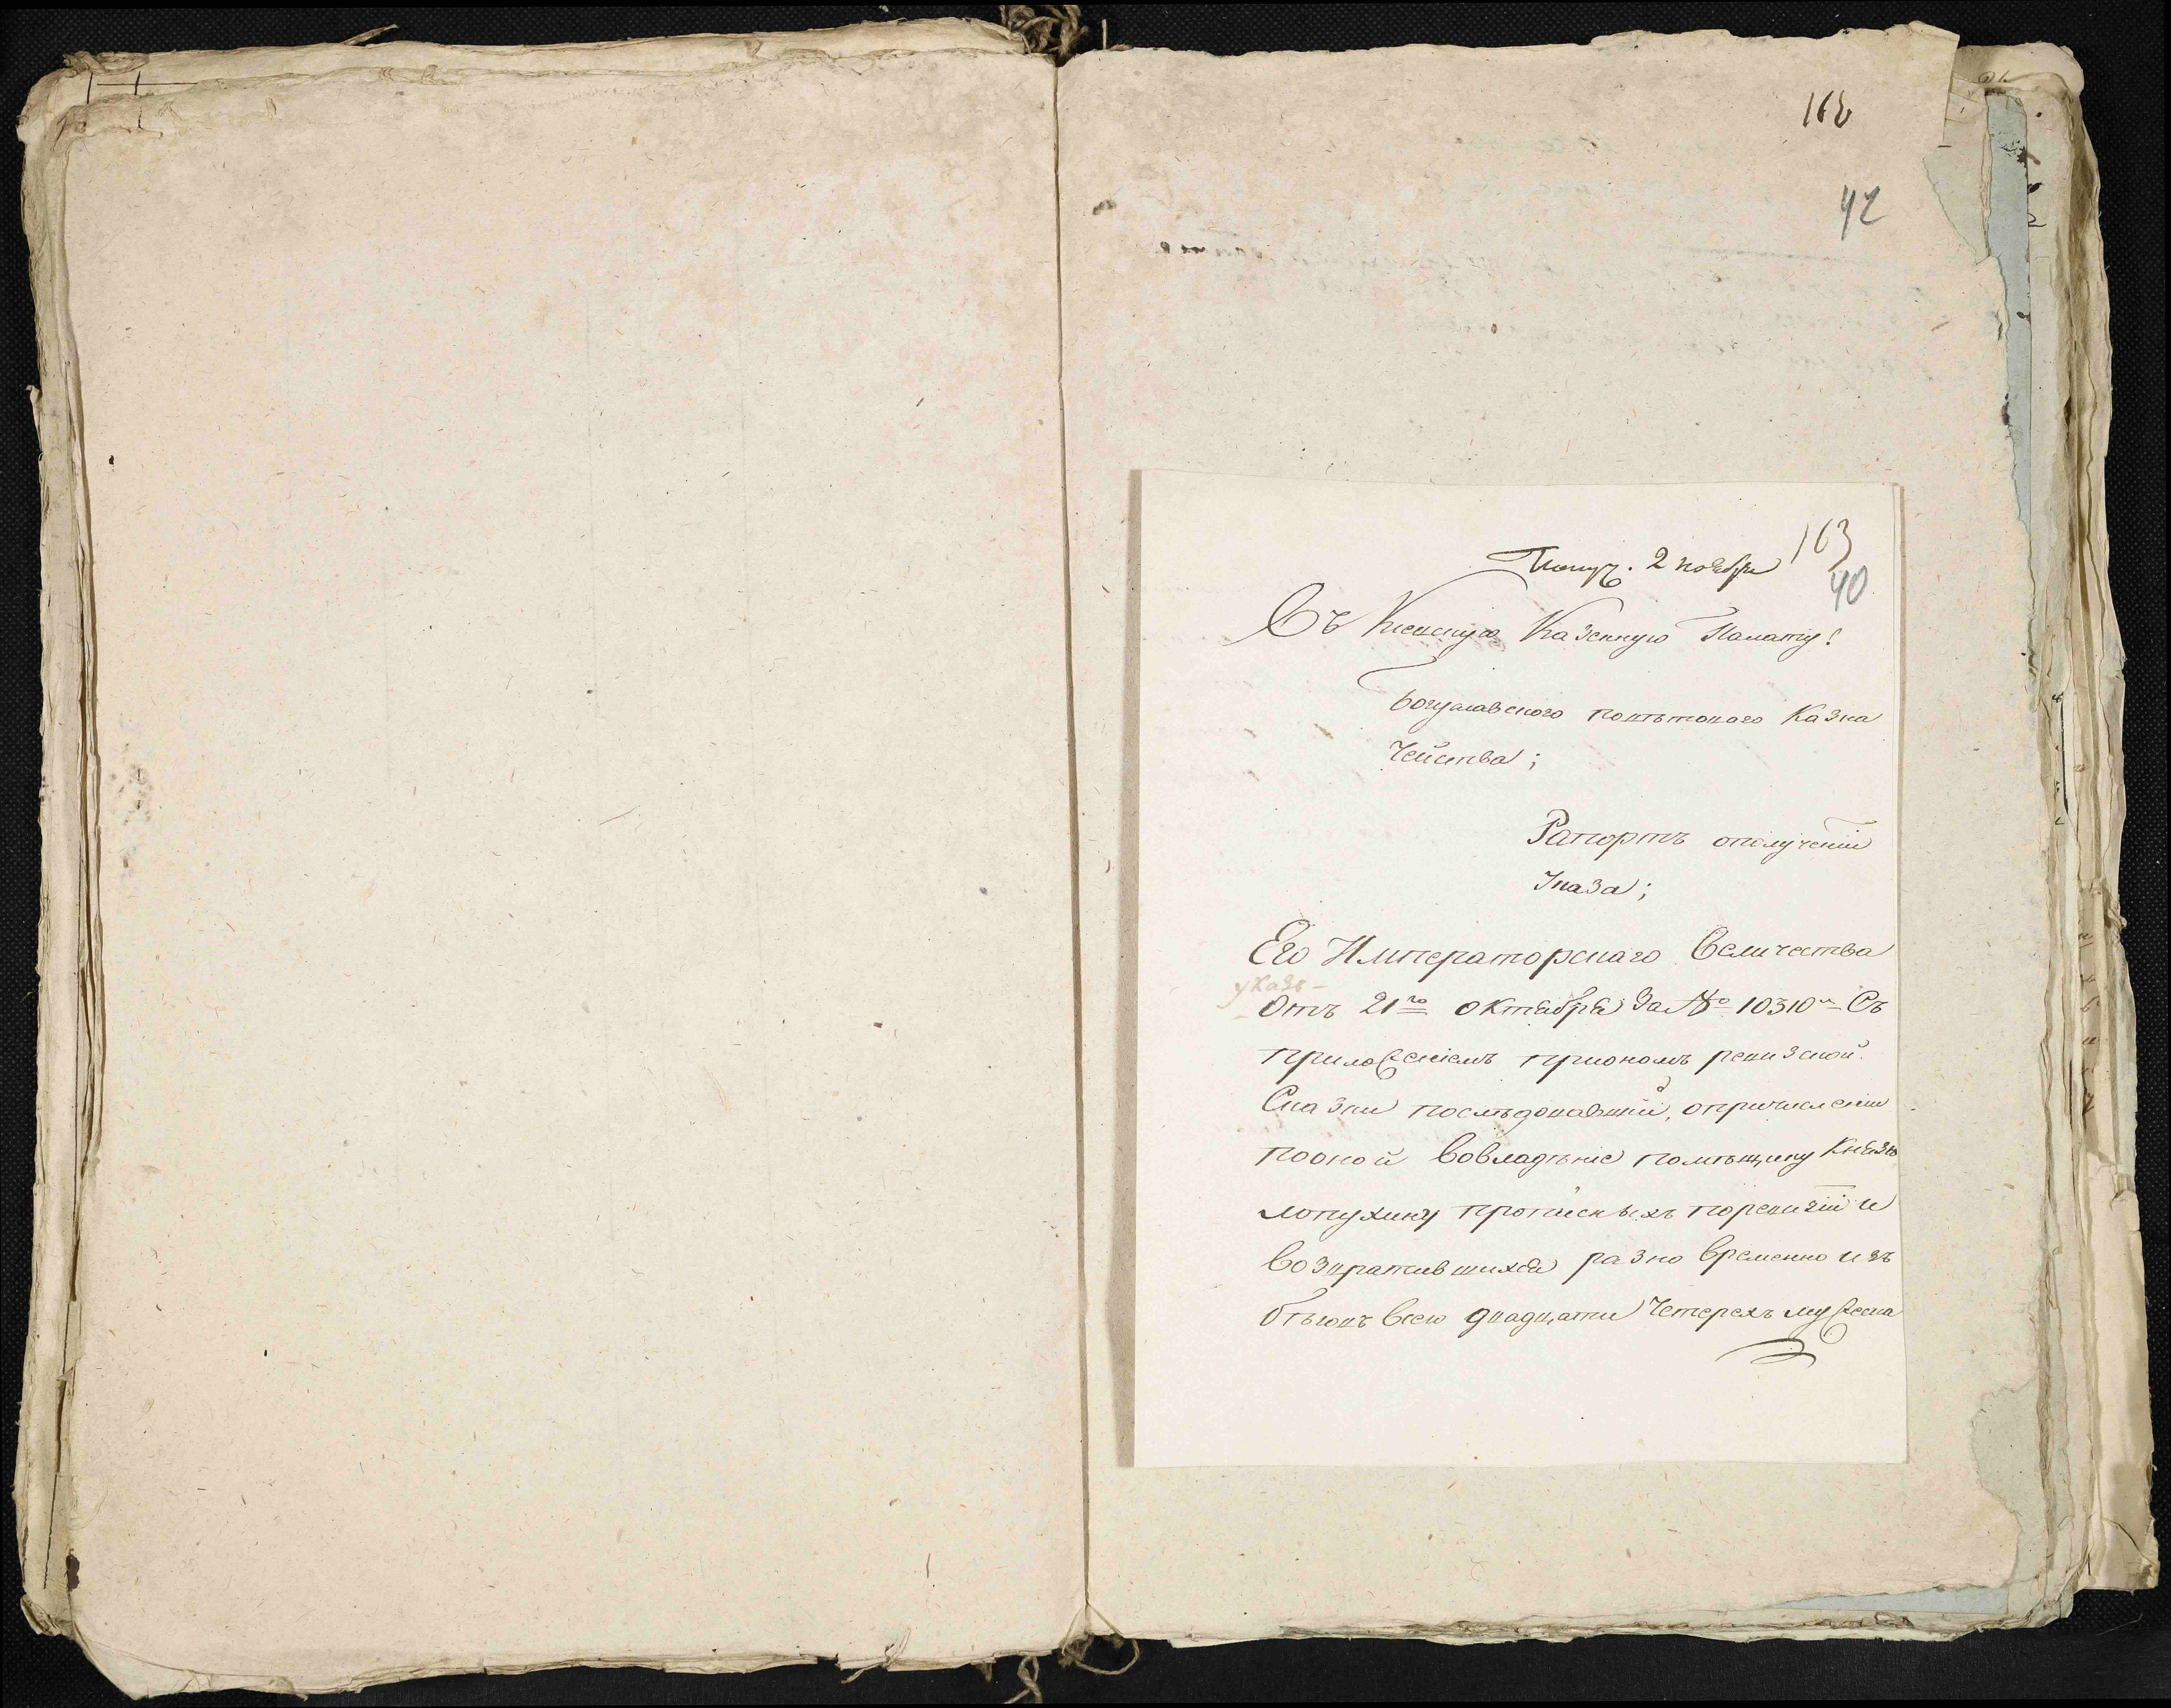 162
42
163
Получ. 2 ноября
40
Въ Киевскую Казенную Палату!
Богуславского поветоваго Казна
чейства;
Рапортъ ополучении
Указа;
Его Императорскаго Величества
указъ -
отъ 21го октября за № 10310м Съ
приложениемъ приономъ ревизской
Сказки последовавший, опричислении
пооной вовладѣние помѣщику Князю
лопухину прописныхъ поревизии и
возвратившихся разно временно изъ
бѣговъ всего двадцати четерехъ мужеска